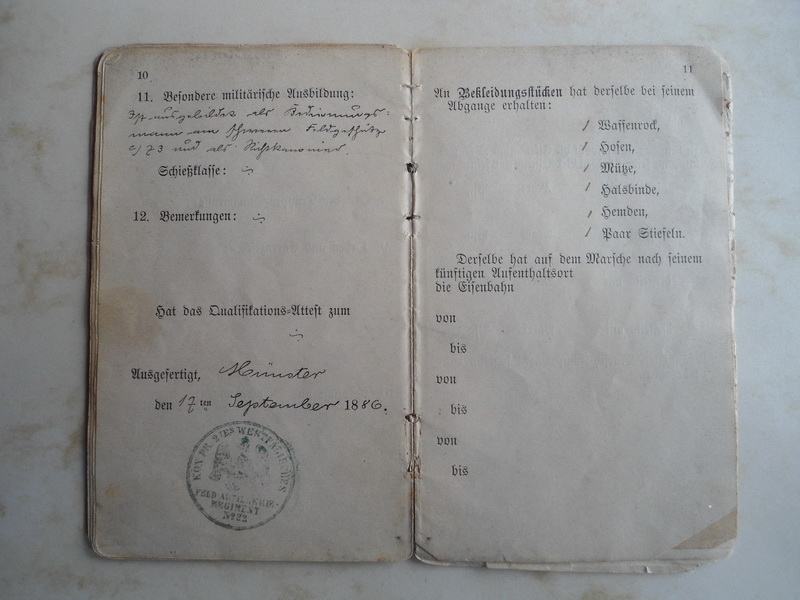 10
11. Besondere militärische Ausbildung:
Ist ausgebildet als Bedienungs-
mann am schweren Feldgeschütz
c/73 und als Richtkanonier.
Schießklasse:
12. Bemerkungen:
Hat das Qualifikations-Attest zum
Ausgefertigt, Münster
den 17ten September 1886.
KÖN. PR. 2TES WESTFÄLISCHES
FELD ARTILLERIE-
REGIMENT
No 22
11
An Bekleidungsstücken hat derselbe bei seinem
Abgange erhalten:
1 Waffenrock,
1 Hosen,
1 Mütze,
1 Halsbinde,
1 Hemden,
1 Paar Stiefeln.
Derselbe hat auf dem Marsche nach seinem
künftigen Aufenthaltsort
die Eisenbahn
von
bis
von
bis
von
bis